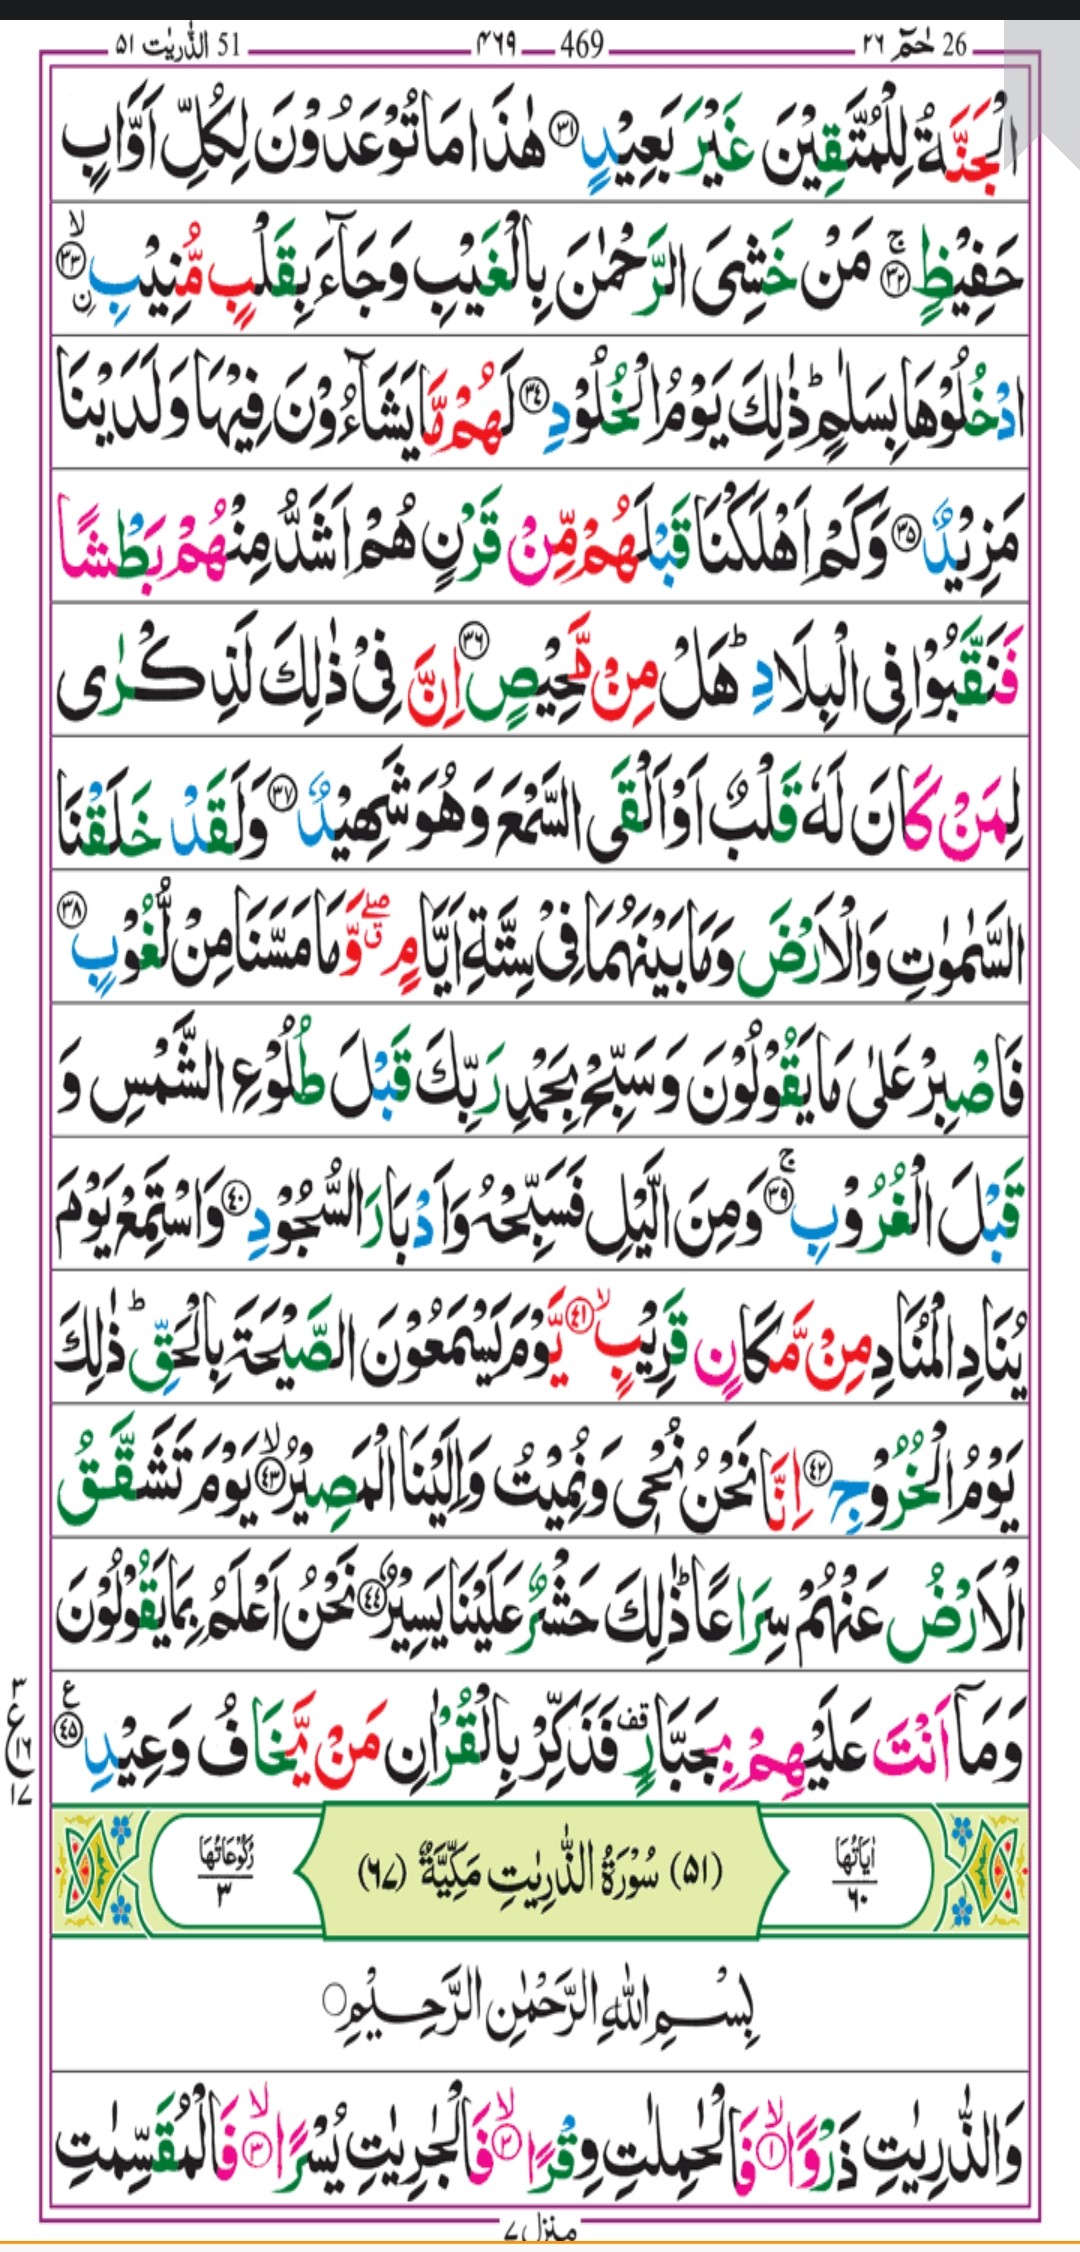 51 الذّٰرِیٰت ٥١ — 469 — ۴۶۹ — 26 حٰمٓ ٢٦
الْجَنَّةُ لِلْمُتَّقِیْنَ غَیْرَ بَعِیْدٍ ﴿۳۱﴾ هٰذَا مَا تُوْعَدُوْنَ لِكُلِّ اَوَّابٍ
حَفِیْظٍ ﴿۳۲﴾ۚ مَنْ خَشِیَ الرَّحْمٰنَ بِالْغَیْبِ وَ جَآءَ بِقَلْبٍ مُّنِیْبِ ﴿۳۳﴾ۙ ن
ادْخُلُوْهَا بِسَلٰمٍ ؕ ذٰلِكَ یَوْمُ الْخُلُوْدِ ﴿۳۴﴾ لَهُمْ مَّا یَشَآءُوْنَ فِیْهَا وَ لَدَیْنَا
مَزِیْدٌ ﴿۳۵﴾ وَ كَمْ اَهْلَكْنَا قَبْلَهُمْ مِّنْ قَرْنٍ هُمْ اَشَدُّ مِنْهُمْ بَطْشًا
فَنَقَّبُوْا فِی الْبِلَادِ ؕ هَلْ مِنْ مَّحِیْصٍ ﴿۳۶﴾ اِنَّ فِیْ ذٰلِكَ لَذِكْرٰی
لِمَنْ كَانَ لَهٗ قَلْبٌ اَوْ اَلْقَی السَّمْعَ وَ هُوَ شَهِیْدٌ ﴿۳۷﴾ وَ لَقَدْ خَلَقْنَا
السَّمٰوٰتِ وَ الْاَرْضَ وَ مَا بَیْنَهُمَا فِیْ سِتَّةِ اَیَّامٍ ۖۗ وَّ مَا مَسَّنَا مِنْ لُّغُوْبٍ ﴿۳۸﴾
فَاصْبِرْ عَلٰی مَا یَقُوْلُوْنَ وَ سَبِّحْ بِحَمْدِ رَبِّكَ قَبْلَ طُلُوْعِ الشَّمْسِ وَ
قَبْلَ الْغُرُوْبِ ﴿۳۹﴾ۚ وَ مِنَ الَّیْلِ فَسَبِّحْهُ وَ اَدْبَارَ السُّجُوْدِ ﴿۴۰﴾ وَ اسْتَمِعْ یَوْمَ
یُنَادِ الْمُنَادِ مِنْ مَّكَانٍ قَرِیْبٍ ﴿۴۱﴾ۙ یَّوْمَ یَسْمَعُوْنَ الصَّیْحَةَ بِالْحَقِّ ؕ ذٰلِكَ
یَوْمُ الْخُرُوْجِ ﴿۴۲﴾ اِنَّا نَحْنُ نُحْیٖ وَ نُمِیْتُ وَ اِلَیْنَا الْمَصِیْرُ ﴿۴۳﴾ۙ یَوْمَ تَشَقَّقُ
الْاَرْضُ عَنْهُمْ سِرَاعًا ؕ ذٰلِكَ حَشْرٌ عَلَیْنَا یَسِیْرٌ ﴿۴۴﴾ نَحْنُ اَعْلَمُ بِمَا یَقُوْلُوْنَ
وَ مَاۤ اَنْتَ عَلَیْهِمْ بِجَبَّارٍ قف فَذَكِّرْ بِالْقُرْاٰنِ مَنْ یَّخَافُ وَعِیْدِ ﴿۴۵﴾ ع
٣ ع ١٦ ١٧
اٰیَاتُهَا ٦٠ (٥١) سُوْرَةُ الذّٰرِیٰتِ مَكِّیَّةٌ (٦٧) رُكُوْعَاتُهَا ٣
بِسْمِ اللّٰهِ الرَّحْمٰنِ الرَّحِیْمِ
وَ الذّٰرِیٰتِ ذَرْوًا ﴿۱﴾ۙ فَالْحٰمِلٰتِ وِقْرًا ﴿۲﴾ۙ فَالْجٰرِیٰتِ یُسْرًا ﴿۳﴾ۙ فَالْمُقَسِّمٰتِ
منزل ٧